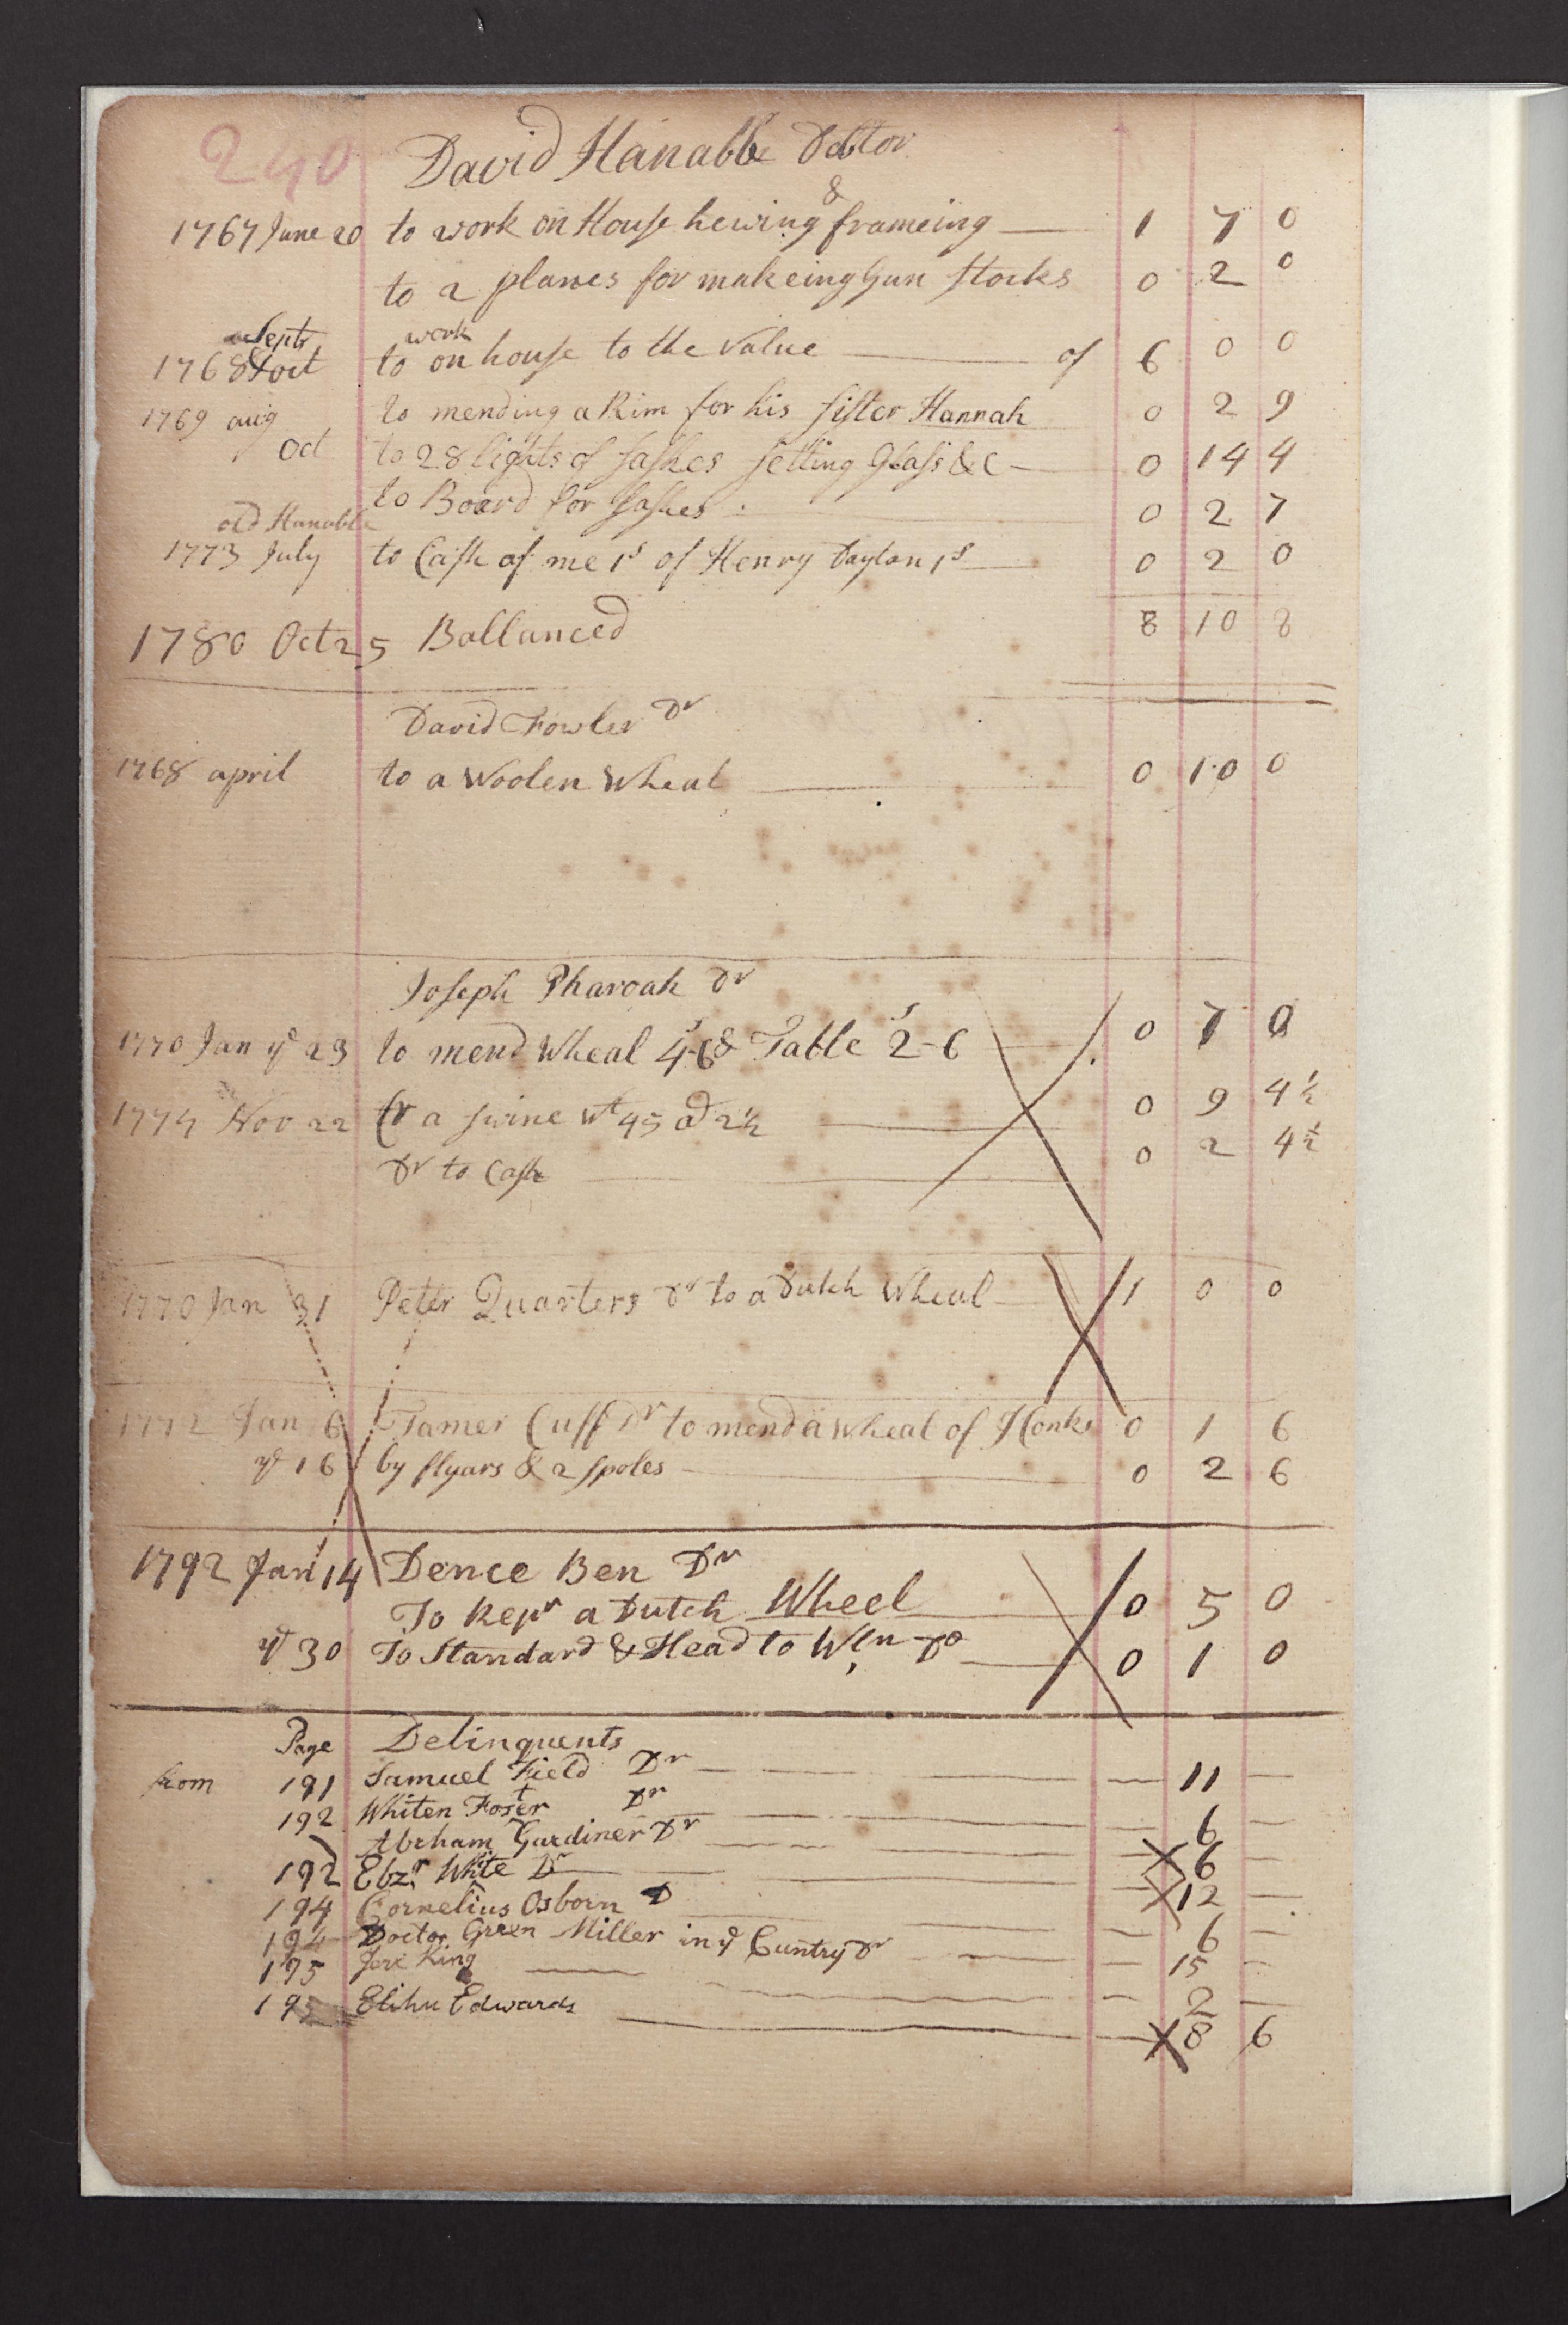 240 David Hanabbe Debtor
1767 June 20 to work on House hewing & frameing 1 7 0
to 2 planes for makeing Gun stocks 0 2 0
Septr work
1768 & oct to on house to the value of 6 0 0
1769 aug to mending a Rim for his sister Hannah 0 2 9
Oct to 28 lights of sashes setting Glass &c 0 14 4
to Board for sashes 0 2 7
old Hanabbe
1773 July to Cash of me 1s of Henry Dayton 1s 0 2 0
8 10 8
1780 Oct 25 Ballanced
David Fowler Dr
1768 april to a Woolen Wheal 0 10 0
Joseph Pharoah Dr
1770 Jan ye 23 to mend Wheal 4s-6 & Table 2s-6 0 7 0
1774 Nov 22 Cr a swine wt 45 a 2½ 0 9 4½
Dr to Cash 0 2 4½
1770 Jan 31 Peter Quarters Dr to a Dutch Wheal 1 0 0
1772 Jan 6 Tamer Cuff Dr to mend a wheal of Honks 0 1 6
ye 16 by flyars & 2 spoles 0 2 6
1792 Jan 14 Dence Ben Dr
To Repr a Dutch Wheel 0 5 0
ye 30 To Standard & Head to Wln Do 0 1 0
Page Delinquents
from 191 Samuel Field Dr 11
192 Whiten Foster Dr 6
Abrham Gardiner Dr 6
192 Ebzr White Dr 12
194 Cornelius Osborn D 6
194 Doctor Green Miller in ye Cuntry Dr 15
195 Jere King 2
195 Elihu Edwards 8 6